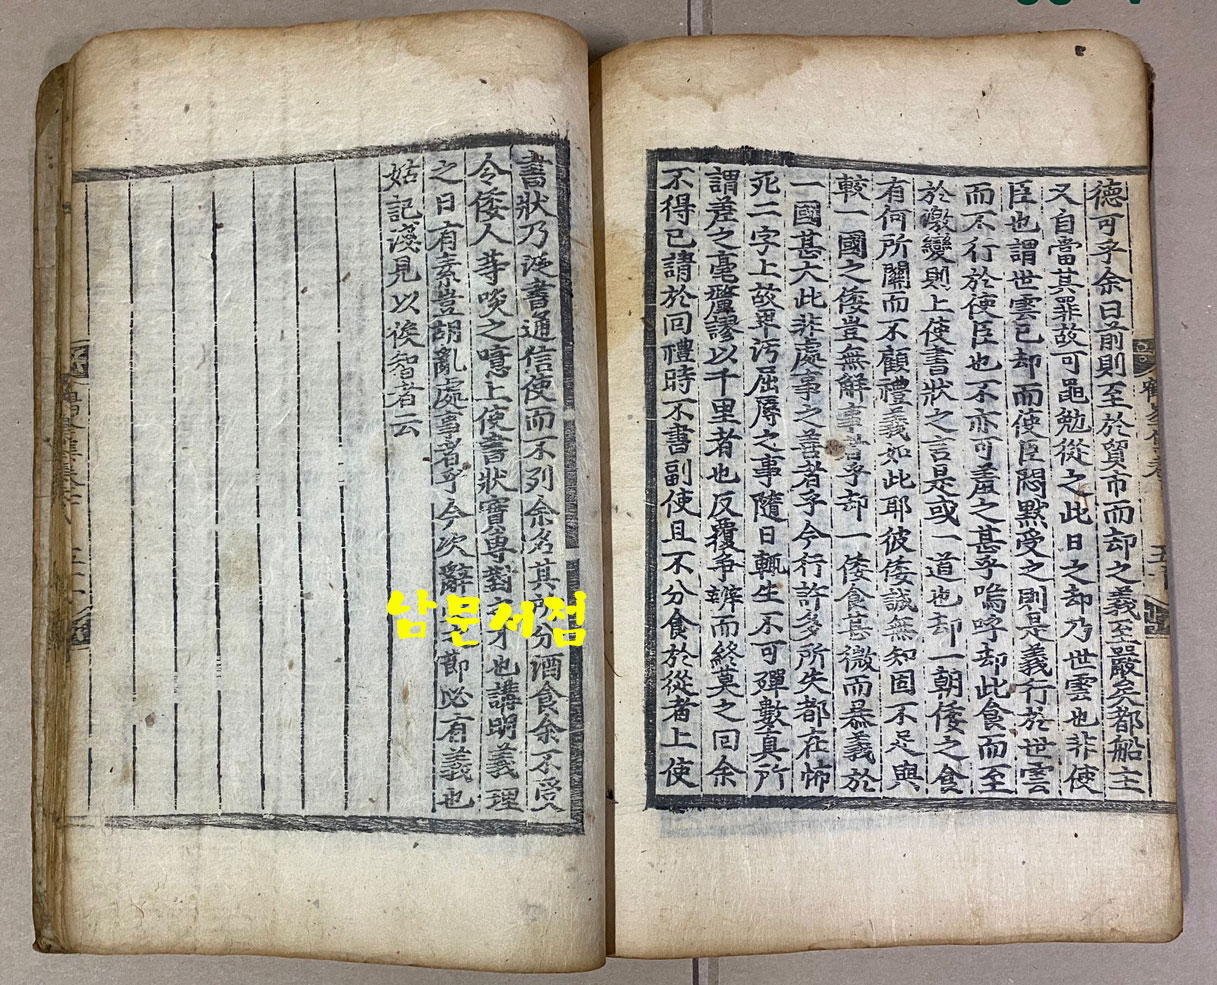 德可乎余曰前則至於貿市而却之義至嚴矣都船主
又自當其罪故可黽勉從之此日之却乃世雲也非使
臣也謂世雲已却而使臣悶默受之則是義行於世雲
而不行於使臣也不亦可羞之甚乎嗚呼却此食而至
於激變則上使書狀之言是或一道也却一朝倭之食
有何所關而不顧禮義如此耶彼倭誠無知固不足與
較一國之倭豈無解事者乎却一倭食甚微而慕義於
一國甚大此非處事之善者乎今行許多所失都在怖
死二字上故卑汚屈辱之事隨日輒生不可殫數眞所
謂差之毫釐謬以千里者也反覆爭辨而終莫之回余
不得已請於回禮時不書副使且不分食於從者上使
書狀乃涎書通信使而不列余名其所分酒食余不受
令倭人等啖之噫上使書狀實專對之才也講明義理
之日有素豈胡亂處事者乎今次辭之節必有義也
姑記淺見以俟智者云
남문서점